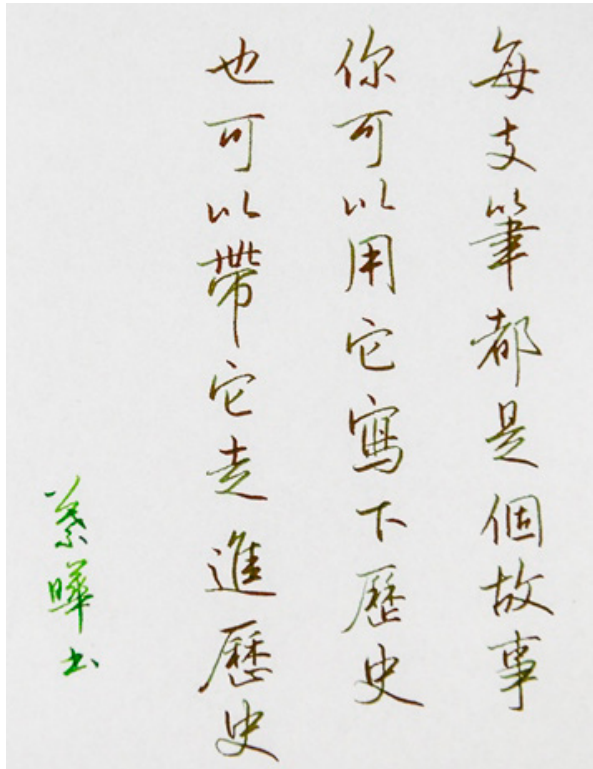 每支筆都是個故事
你可以用它寫下歷史
也可以帶它走進歷史
葉曄書